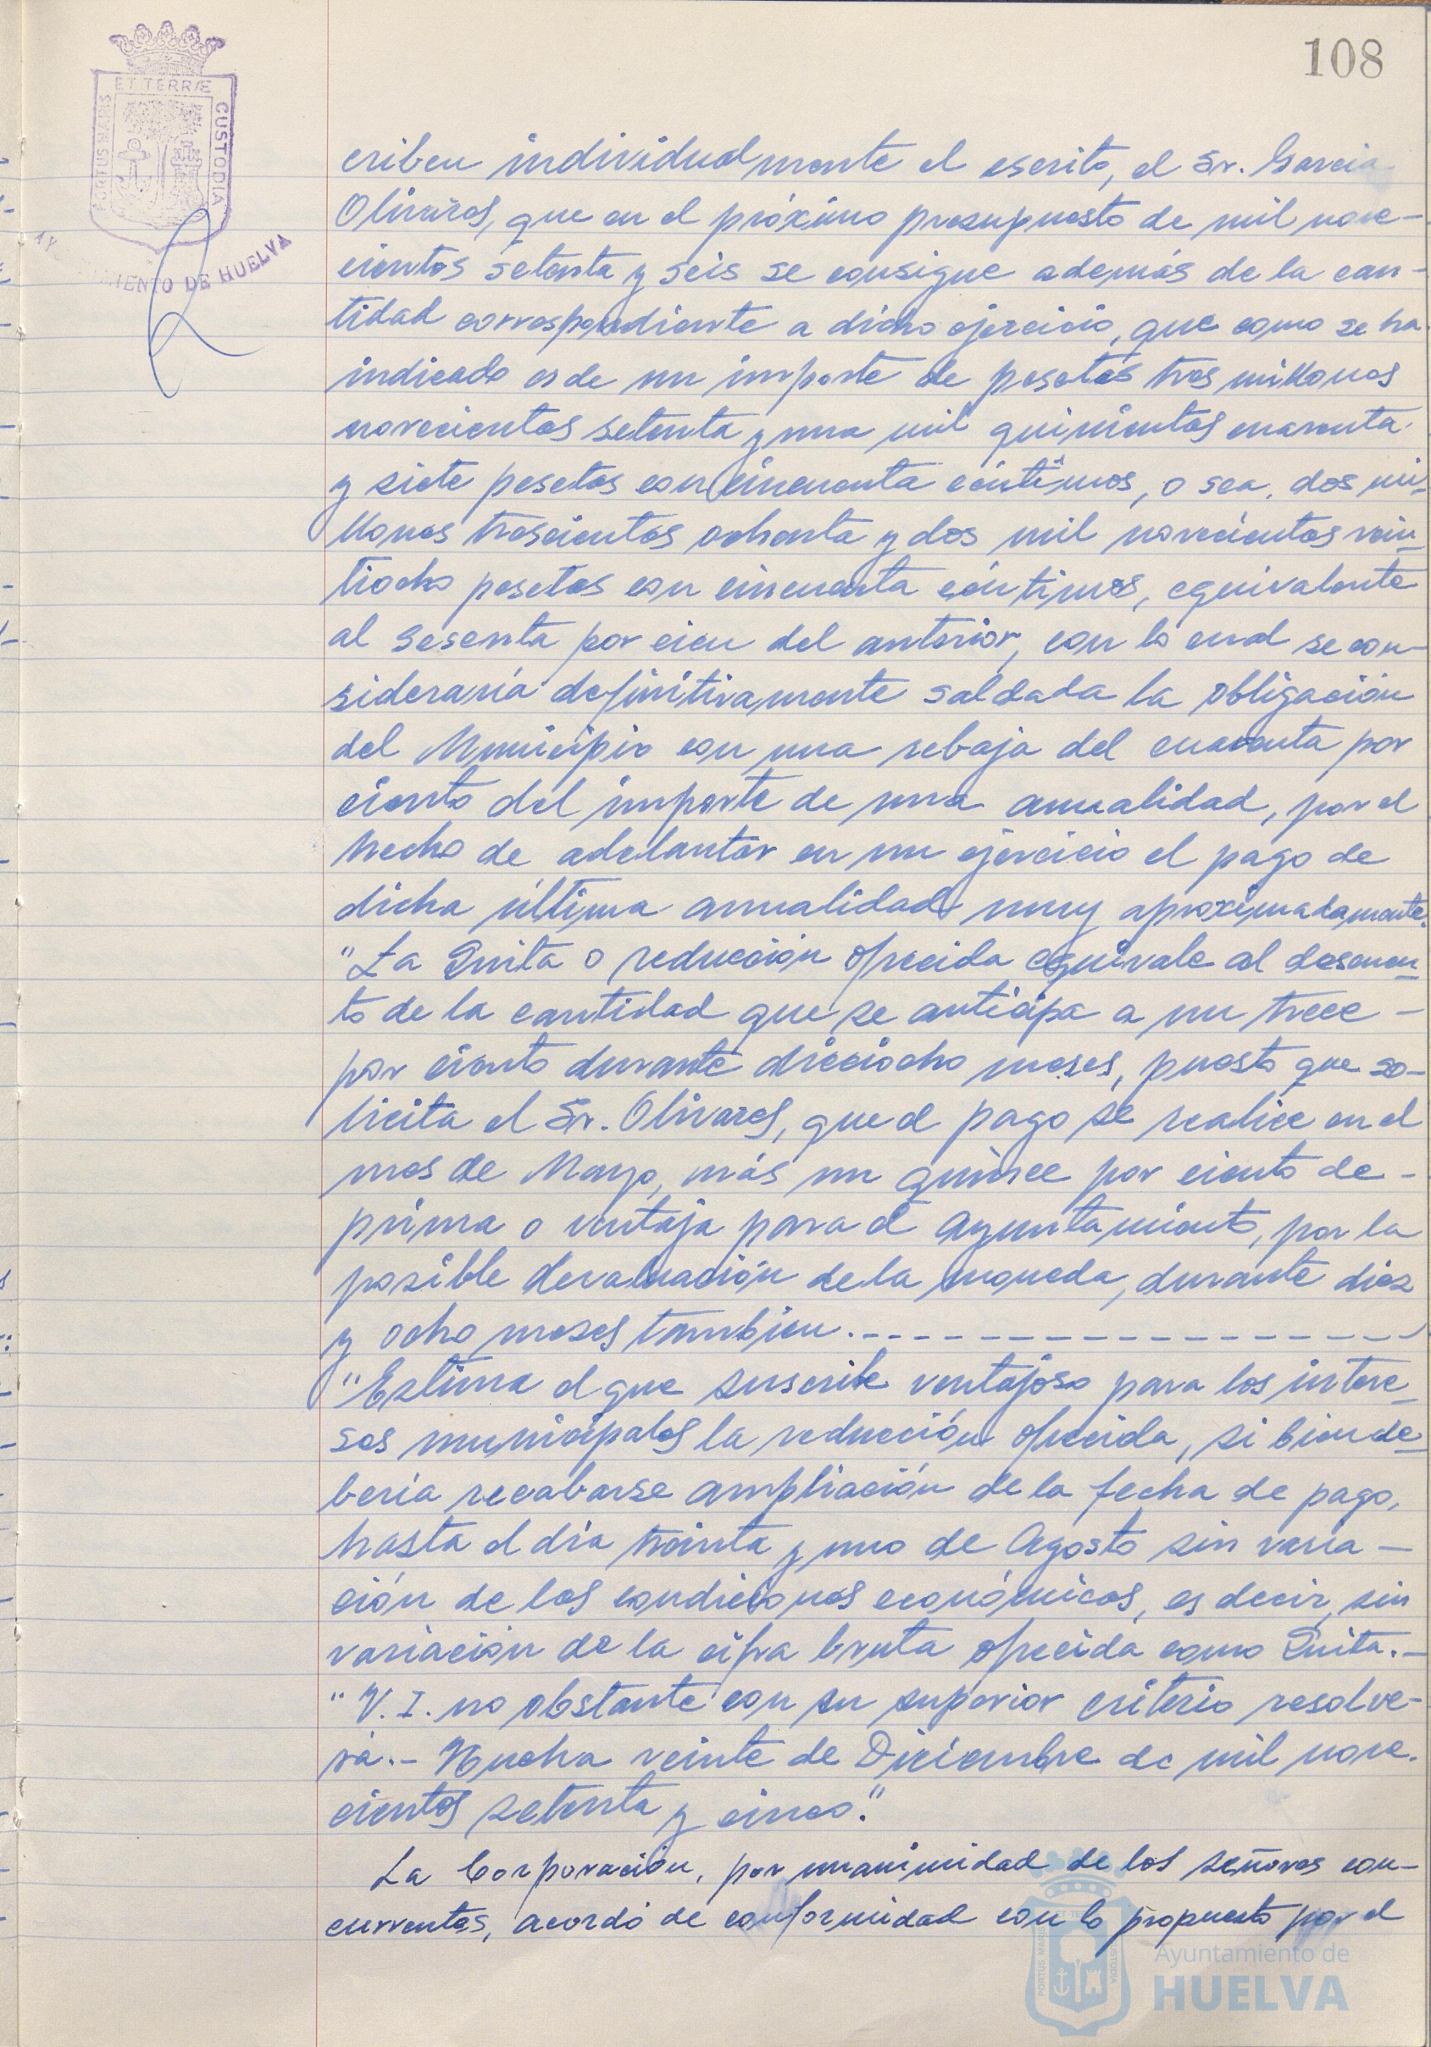 108
ET TERRÆ
PORTUS MARIS
CUSTODIA
AYUNTAMIENTO DE HUELVA
criben individualmente el escrito, el Sr. Garcia
Olivares, que en el próximo presupuesto de mil nove-
cientos setenta y seis se consigue además de la can-
tidad correspondiente a dicho ejercicio, que como se ha
indicado es de un importe de pesetas tres millones
novecientos setenta y una mil quinientos cuarenta
y siete pesetas con cincuenta céntimos, o sea, dos mi-
llones trescientos ochenta y dos mil novecientos vein-
tiocho pesetas con cincuenta céntimos, equivalente
al sesenta por cien del anterior, con lo cual se con-
sideraría definitivamente saldada la obligación
del Municipio con una rebaja del cuarenta por
ciento del importe de una anualidad, por el
hecho de adelantar en un ejercicio el pago de
dicha última anualidad muy aproximadamente.
"La Quita o reducción ofrecida equivale al descuen-
to de la cantidad que se anticipa a un trece -
por ciento durante dieciocho meses, puesto que so-
licita el Sr. Olivares, que el pago se realice en el
mes de Mayo, más un quince por ciento de -
prima o ventaja para el Ayuntamiento, por la
posible devaluación de la moneda, durante diez
y ocho meses tambien.- - - - - - - - - - - - - -
"Estima el que suscribe ventajoso para los intere-
ses municipales la reducción ofrecida, si bien de-
bería recabarse ampliación de la fecha de pago,
hasta el día treinta y uno de Agosto sin varia -
ción de las condiciones económicas, es decir, sin
variación de la cifra bruta ofrecida como Quita.-
"V. I. no obstante con su superior criterio resolve-
rá.- Huelva veinte de Diciembre de mil nove-
cientos setenta y cinco."
La Corporación, por unanimidad de los señores con-
currentes, acordó de conformidad con lo propuesto por el
Ayuntamiento de
HUELVA